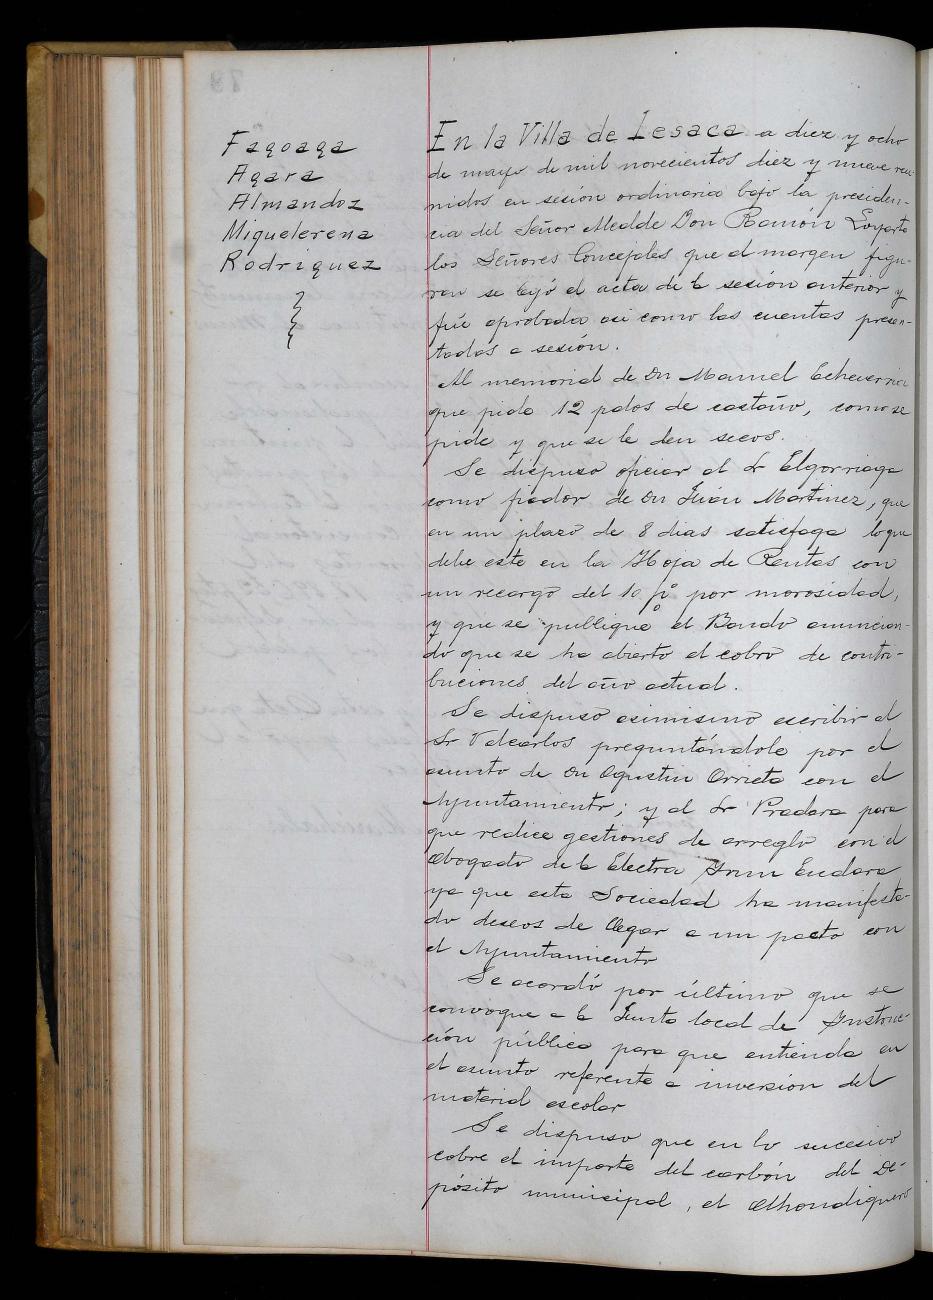 Fagoaga
Agara
Almandoz
Miquelerena
Rodriguez
En la Villa de Lesaca a diez y ocho
de mayo de mil novecientos diez y nueve reu-
nidos en sesión ordinaria bajo la presiden-
cia del Señor Alcalde Don Ramón Loyarte
los Señores Concejales que al margen figu-
ran se leyó el acta de la sesión anterior y
fué aprobada asi como las cuentas presen-
tadas a sesión.
Al memorial de Dn Manuel Echeverria
que pide 12 palos de castaño, como se
pide y que se le den secos.
Se dispuso oficiar al Sr Elgorriaga
como fiador de Dn Juán Martinez, que
en un plazo de 8 dias satisfaga lo que
debe este en la Hoja de Rentas con
un recargo del 10 p% por morosidad,
y que se publique el Bando anuncian-
do que se ha abierto el cobro de contri-
buciones del año actual.
Se dispuso asimismo escribir al
Sr Valcarlos preguntándole por el
asunto de Dn Agustin Arrieta con el
Ayuntamiento; y al Sr Pradera para
que realice gestiones de arreglo con el
abogado de la Electra Irun Endara
ya que esta Sociedad ha manifesta-
do deseos de llegar a un pacto con
el Ayuntamiento
Se acordó por último que se
convoque a la Junta local de Instruc-
ción pública para que entienda en
el asunto referente a inversión del
material escolar
Se dispuso que en lo sucesivo
cobre el importe del carbón del De-
pósito municipal, el Alhondiguero